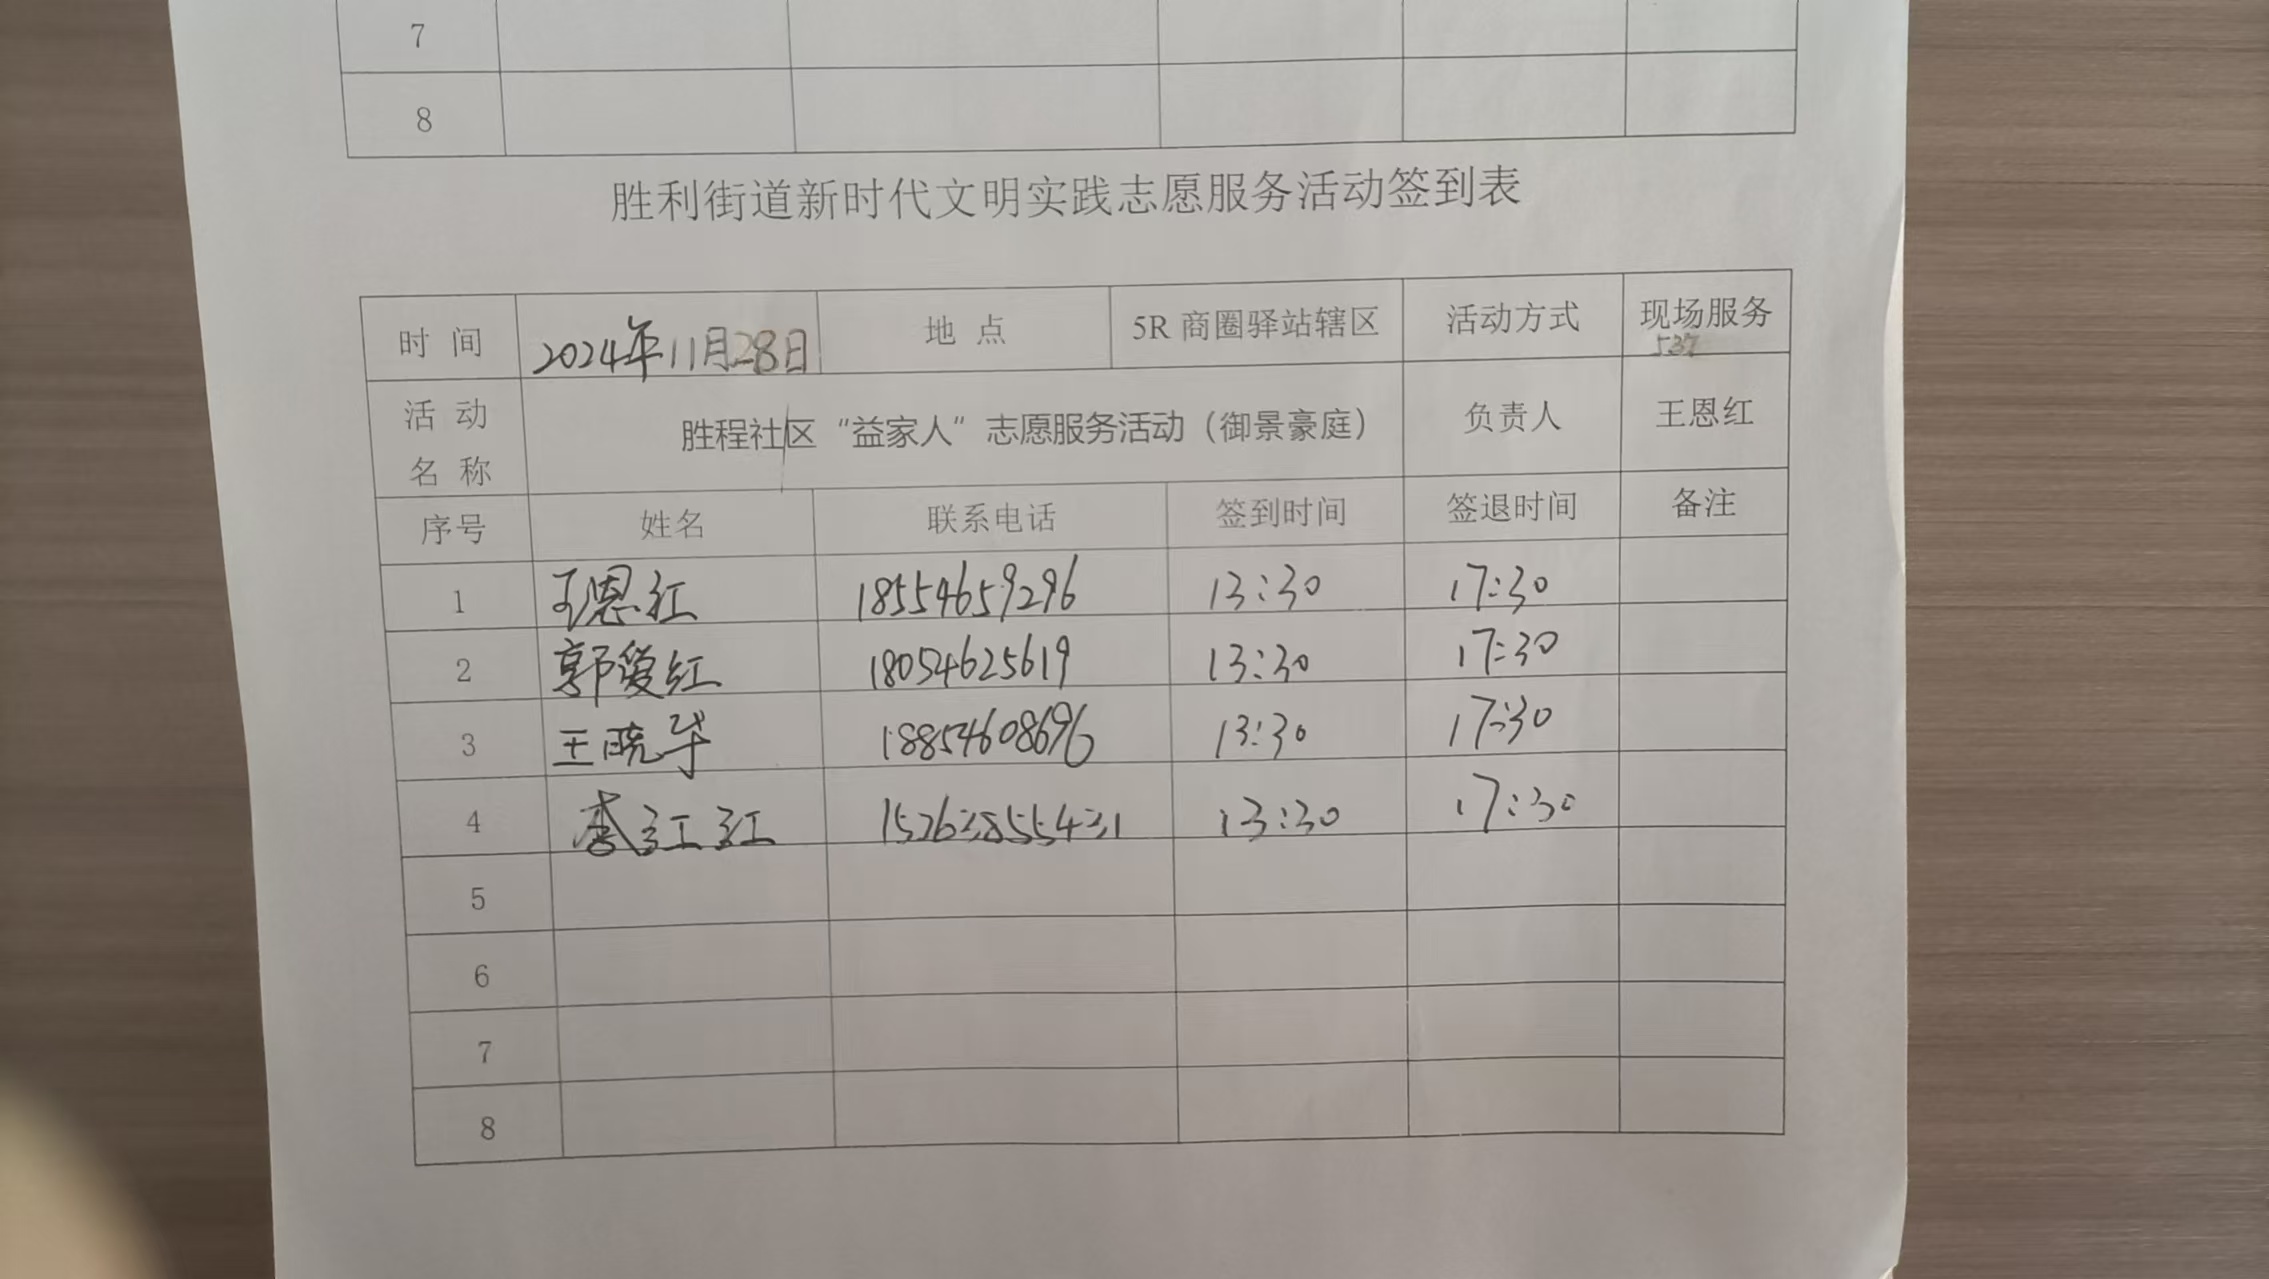 7
8
胜利街道新时代文明实践志愿服务活动签到表
时 间 2024年11月28日 地 点 5R 商圈驿站辖区 活动方式 现场服务
活 动 名 称 胜程社区“益家人”志愿服务活动（御景豪庭） 负责人 王恩红
序号 姓名 联系电话 签到时间 签退时间 备注
1 王恩红 18554659296 13:30 17:30
2 郭爱红 18054625619 13:30 17:30
3 王晓华 18854608696 13:30 17:30
4 李江红 15263855431 13:30 17:30
5
6
7
8